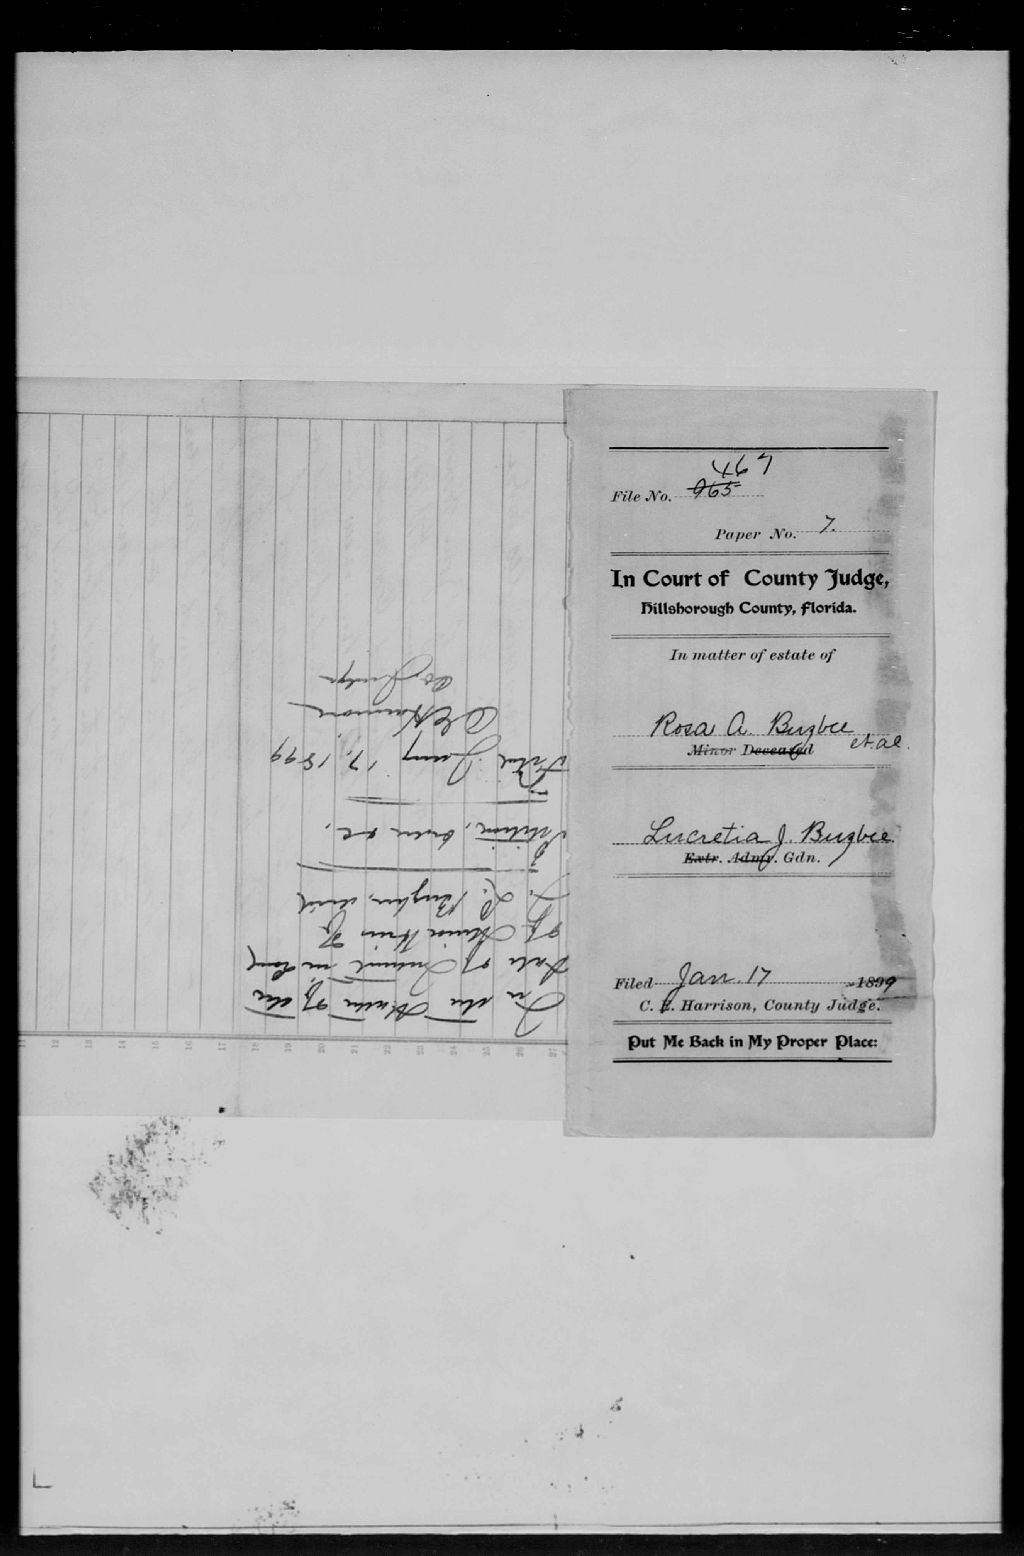 467
File No. 965
Paper No. 7.
In Court of County Judge,
Hillsborough County, Florida.
In matter of estate of
Rosa A. Bugbee
et al.
Minor Deceased
Lucretia J. Bugbee
Extr. Admr. Gdn.
Filed Jan. 17 1899
C. E. Harrison, County Judge.
Put Me Back in My Proper Place:
In the Matter of the
Sale of Interest in Land
of Minor Heirs of
L. Bugbee, decd
Petition, over ac.
Filed Jany 17, 1899
C E Harrison
Co Judge
11 12 13 14 15 16 17 18 19 20 21 22 23 24 25 26 27